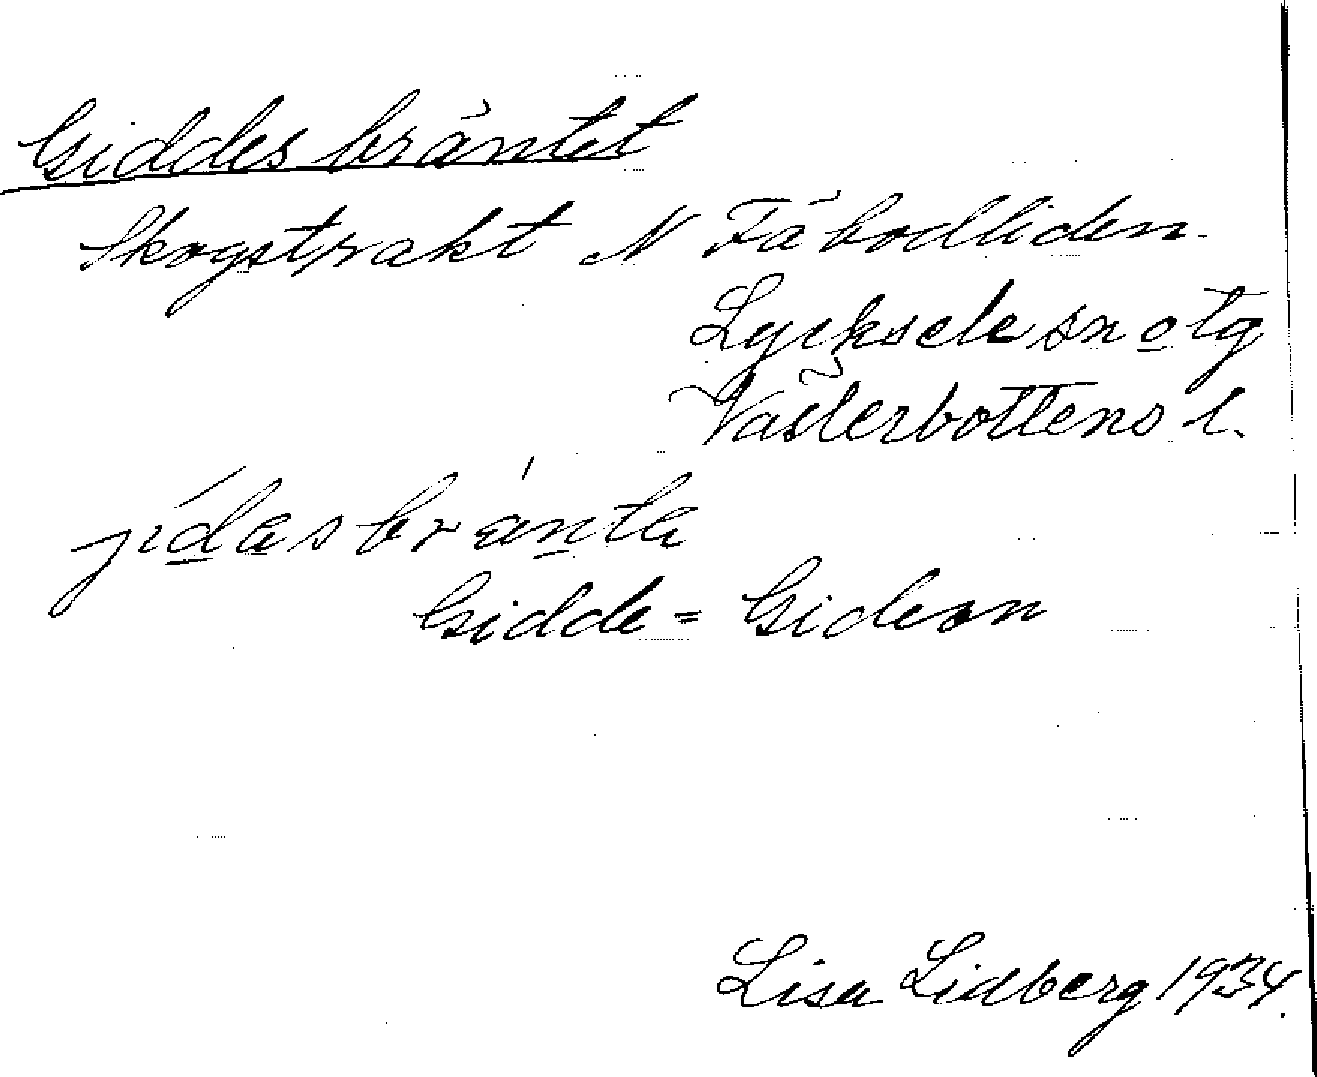 Giddesbräntet
Skogstrakt N Fäbodliden.
Lycksele sn o tg
Västerbottens l.
jídasbránta
Gidde = Gideon
Lisa Lidberg 1934.